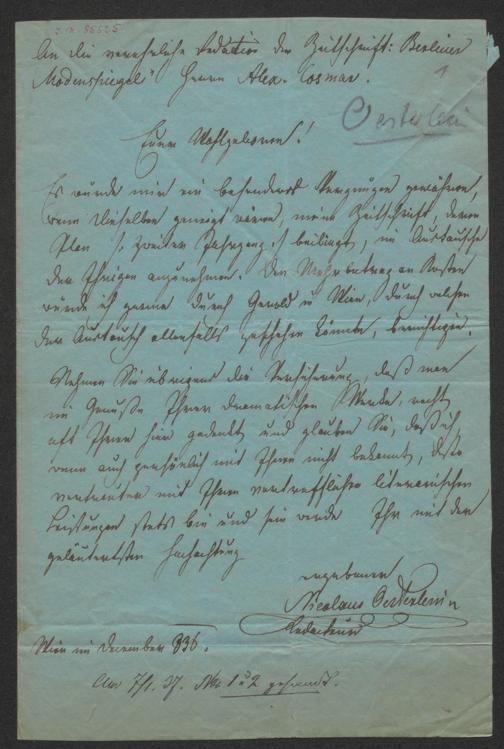 I.N. 85525
An die verehrliche Redaction der Zeitschrift: Berliner
Modenspiegel" Herrn Alex. Cosmar.
1
Oesterlein
Euer Wohlgeboren!
Es würde mir ein besonderes Vergnügen gewähren,
wenn Dieselben geneigt wären, meine Zeitschrift, deren
Plan /: zweiter Jahrgang :/ beiliegt, im Austausche
der Ihrigen anzunehmen. Den Mehrbetrag an Kosten
würde ich gerne durch Gerold in Wien, durch welchen
der Austausch allenfalls geschehen könnte, berichtigen.
Nehmen Sie übrigens die Versicherung, daß man
im Genuße Ihrer dramatischen Werke, recht
oft Ihrer hier gedenkt und glauben Sie, daß ich
wenn auch persönlich mit Ihnen nicht bekannt, desto
vertrauter mit Ihren vortrefflichen literarischen
Leistungen stets bin und sein werde Ihr mit der
geläutertsten Hochachtung
ergebener
Nicolaus Oesterlein
Redacteur
Wien im December 836.
Am 7/1. 37. No 1 u 2 gesandt.